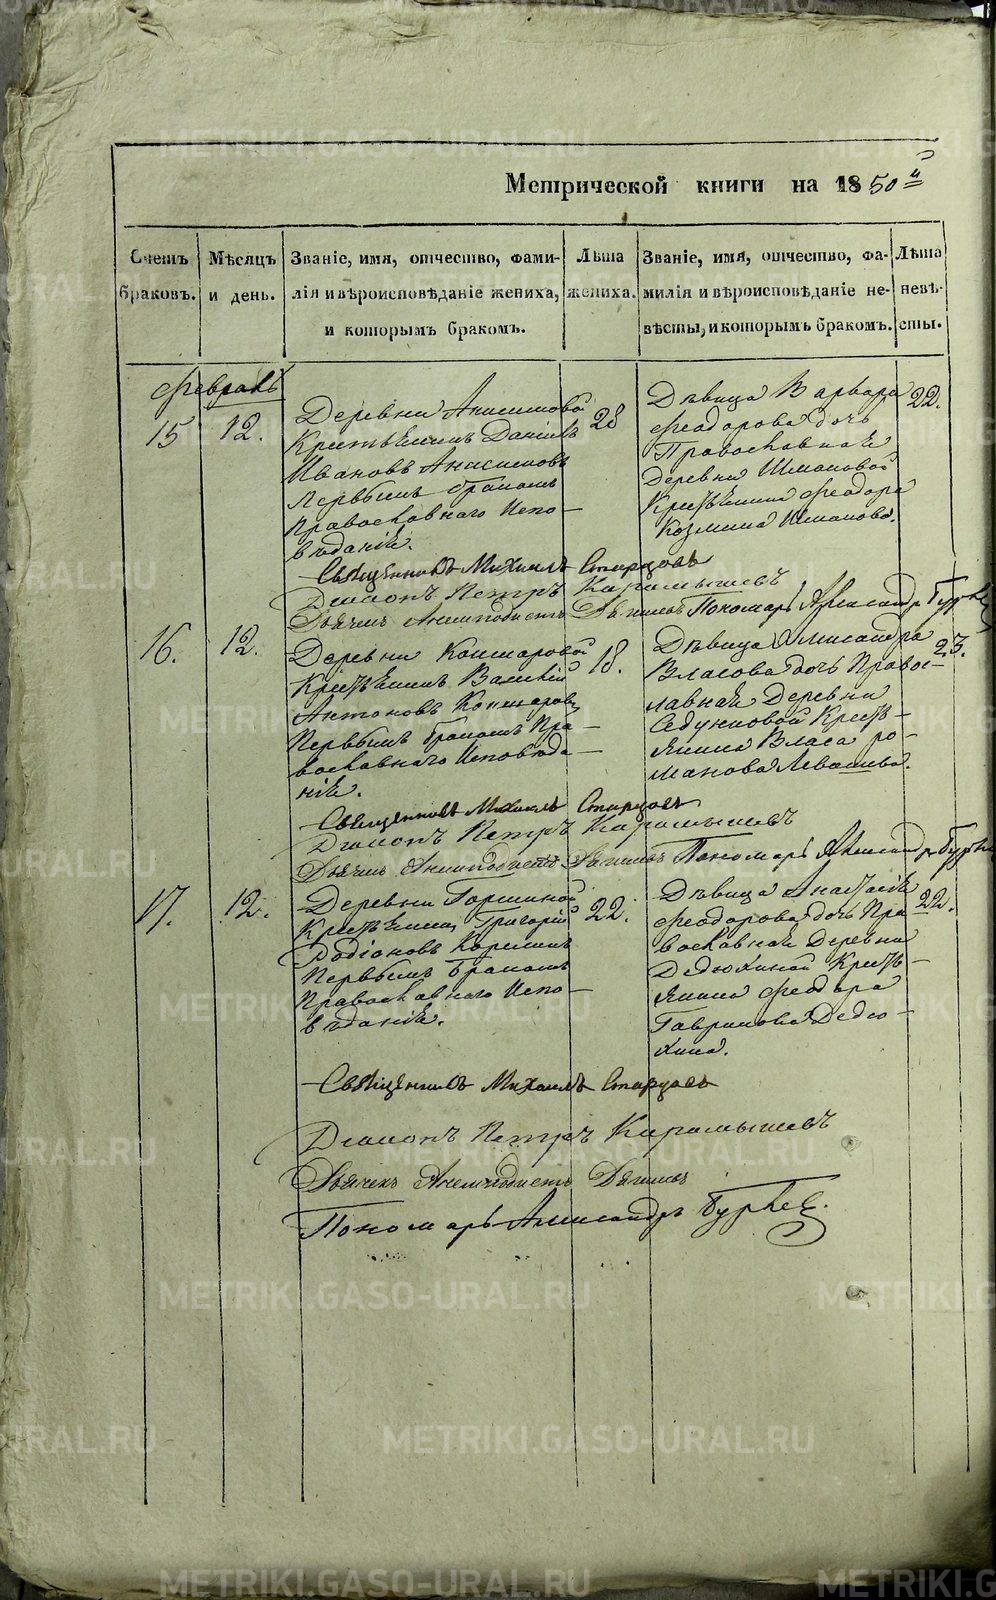 Метрической книги на 1850й
Счетъ браковъ.
Мѣсяцъ и день.
Званіе, имя, отчество, фами-
лія и вѣроисповѣданіе жениха,
и которымъ бракомъ.
Лѣта жениха.
Званіе, имя, отчество, фа-
милія и вѣроисповѣданіе не-
вѣсты, и которымъ бракомъ.
Лѣта невѣ-
сты.
Февраль
15 12.
Деревни Анисимовой
Крестьянинъ Даніилъ
Ивановъ Анисимовъ
Первымъ бракомъ
Православнаго Испо-
вѣданія.
28
Дѣвица Варвара
Феодорова дочь
Православная
Деревни Шмаковой
Феодора
Козмина Шмакова.
22.
Священникъ Михаилъ Старцовъ
Діаконъ Петръ Карамышевъ
Дьячекъ Пономарь Александръ
16. 12.
Деревни Кошкаровой
Крестьянинъ
Антоновъ Кошкаровъ
Первымъ бракомъ Пра-
вославнаго Исповѣда-
нія.
18.
Дѣвица Александра
Власова дочь Правос-
лавная Деревни
Седунковой Кресть-
янина Власа Ро-
манова
23.
Священникъ Михаилъ Старцовъ
Діаконъ Петръ Карамышевъ
Дьячекъ Пономарь Александръ
17. 12.
Деревни
Крестьянинъ Григорій
Родіоновъ
Первымъ бракомъ
Православнаго Испо-
вѣданія.
22.
Дѣвица Анастасія
Феодорова дочь Пра
вославная Деревни
Дедюхиной Кресть-
янина Феодора
Гаврилова Дедю-
хина.
22.
Священникъ Михаилъ Старцовъ
Діаконъ Петръ Карамышевъ
Дьячекъ
Пономарь Александръ
METRIKI.GASO-URAL.RU